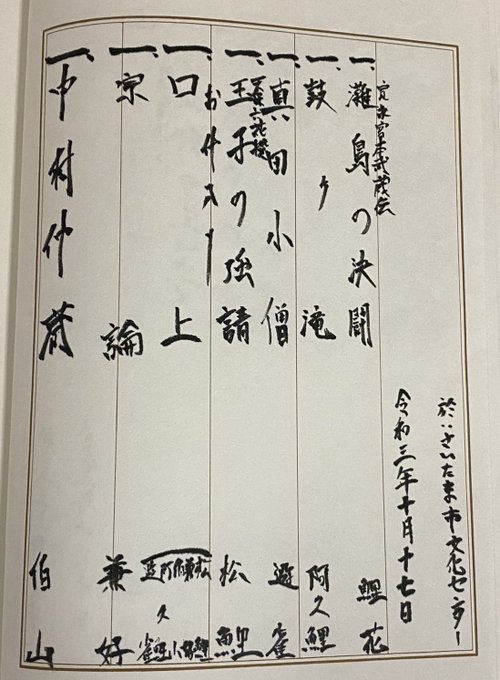 於:さいたま市文化センター
令和三年十月十七日
寛永宮本武蔵伝
一、灘島の決闘 鯉花
一、鼓ヶ滝 阿久鯉
一、真田小僧 遊雀
天保六花撰
一、玉子の強請 松鯉
一、口上
一、宗論 兼好
一、中村仲蔵 伯山